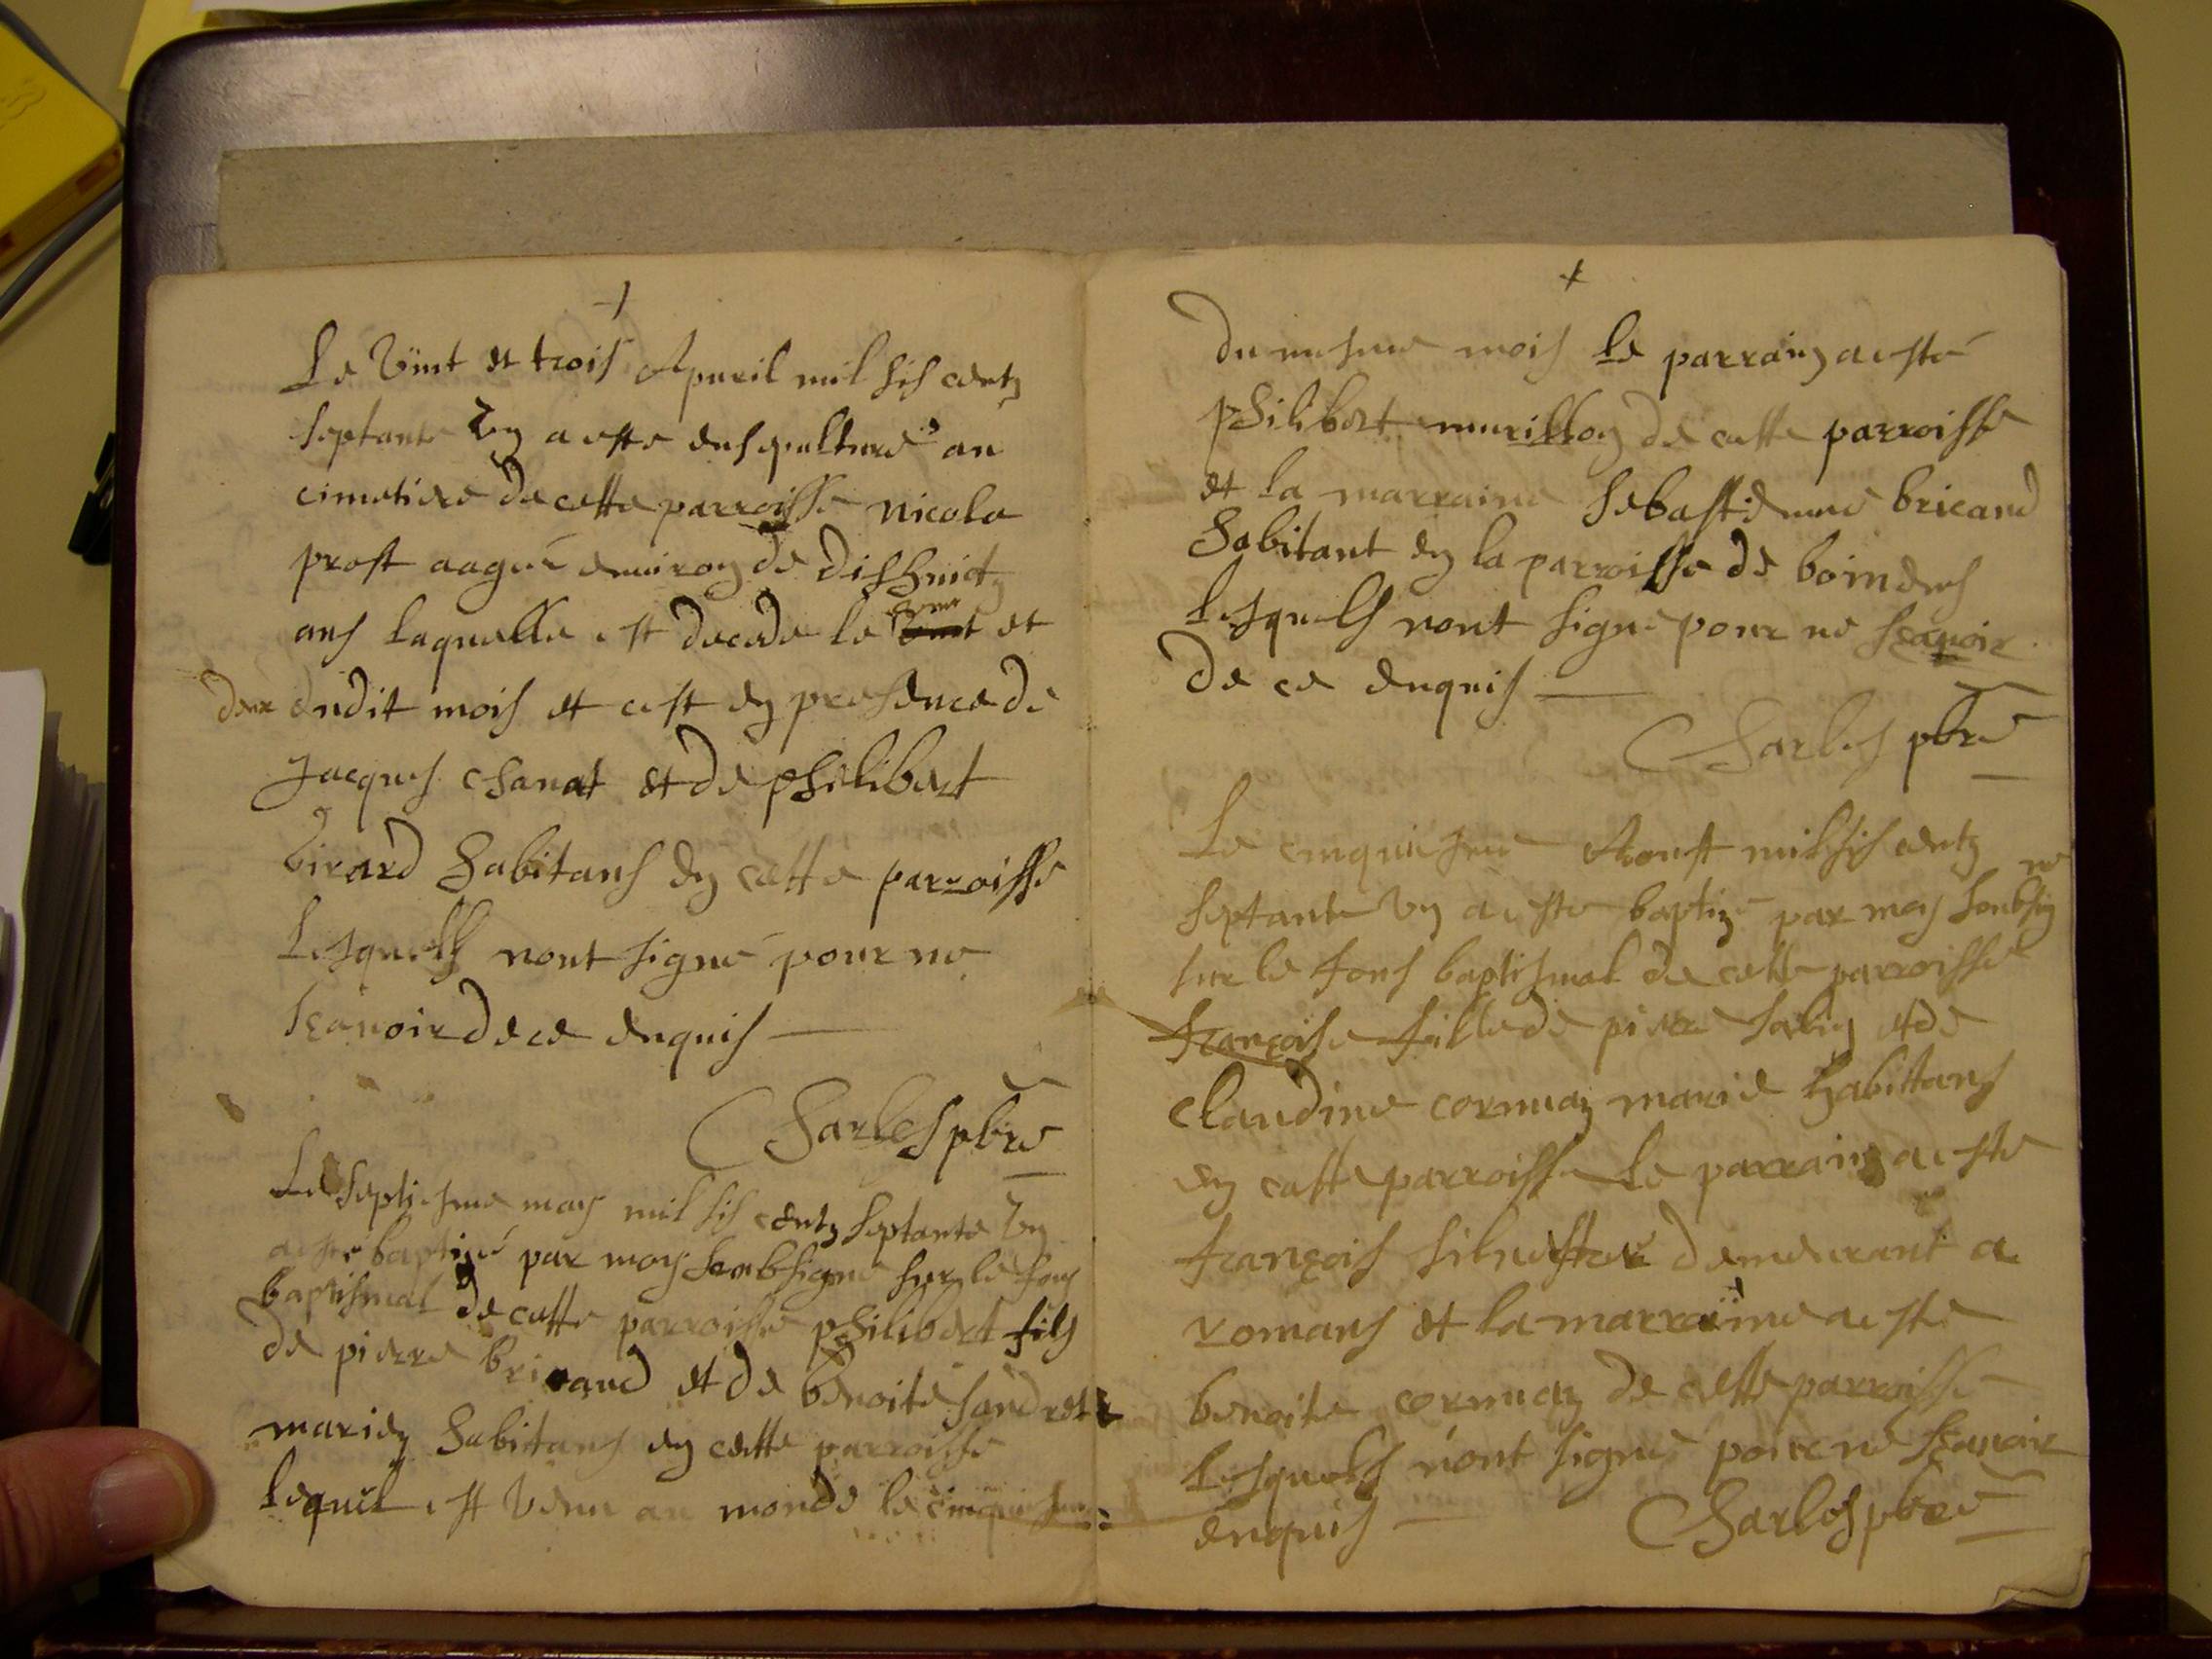 +
Le Vint et trois Apuril mil sis centz
septante Vn a este ensepulturé au
cimetiere de cette parroisse nicola
prost aagée enuiron de dishuict
ans laquelle est decede le et
deux dudit mois et cest en presence de
Jacques chanat et de philibert
Girard habitans en cette parroisse
Lesquells nont signé pour ne
scauoir de ce enquis
Charles pbre
Le septiesme may mil sis centz septante Vn
a este baptizé par moy soubsigné sur le fons
baptismal de cette parroisse philibert fils
de pierre bricaud et de benoite sandret
mariez habitans en cette parroisse
lequel est Venu au monde le cinquiesme
+
du mesme mois le parrain a esté
philibert murillon de cette parroisse
et la marraine sebastienne bricaud
habitant en la parroisse de
lesquels nont signe pour ne scauoir
de ce enquis
Charles pbre
Le cinquiesme Aoust mil sis centz
septante Vn a este baptize par moy soubsigne
sur le fons baptismal de cette parroisse
françoise fille de pierre et de
claudine cormaz marie habittans
en cette parroisse Le parrain a este
françois siluestre demeurant a
romans et la marraine a este
benoite cormaz de cette parroisse
lesquels n'ont signé pour ne scauoir
enquis
Charles pbre